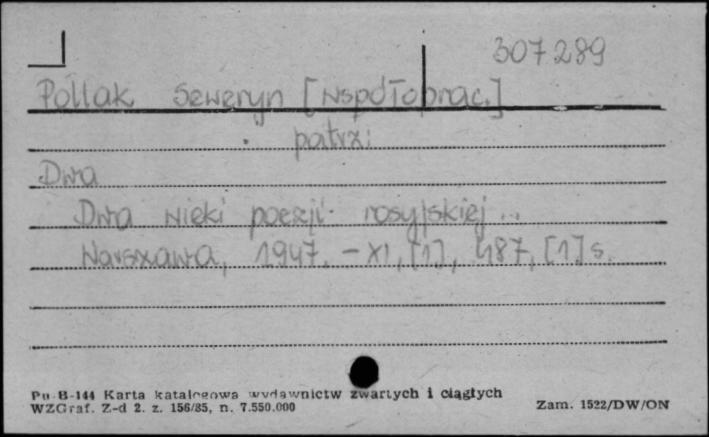 307289
Pollak Seweryn [współoprac.]
patrz:
Dwa
Dwa wieki poezji rosyjskiej...
Warszawa, 1947. – XI, [1], 487, [1] s.
Pu-B-144 Karta katalogowa wydawnictw zwartych i ciągłych
WZGraf. Z-d 2. z. 156/85, n. 7.550.000
Zam. 1522/DW/ON